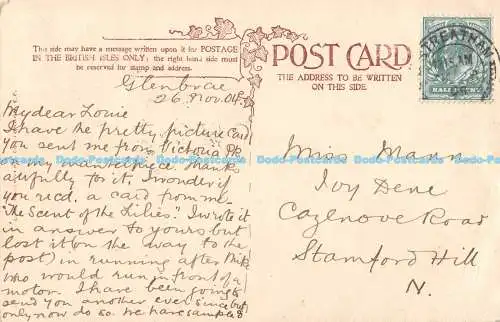 This side may have a message written upon it for POSTAGE
IN THE BRITISH ISLES ONLY; the right hand side must
be reserved for stamp and address.
POST CARD
THE ADDRESS TO BE WRITTEN
ON THIS SIDE.
STREATHAM
HALFPENNY
Glenbrae
26. Nov. 04.
My dear Louie
I have the pretty picture Card
you sent me from Victoria Pk
on my mantelpiece. Thanks
awfully for it. I wonder if
you recd. a card from me
"The Scent of the Lilies". I wrote it
in answer to yours but
lost it (on the way to the
post) in running after Mike
who would run in front of a
motor. I have been going to
send you another ever since but
only now do so. We have
Miss Mann
Ivy Dene
Cazenove Road
Stamford Hill
N.
Dodo-Postcards Dodo-Postcards Dodo-Postcards Dodo-Postcards